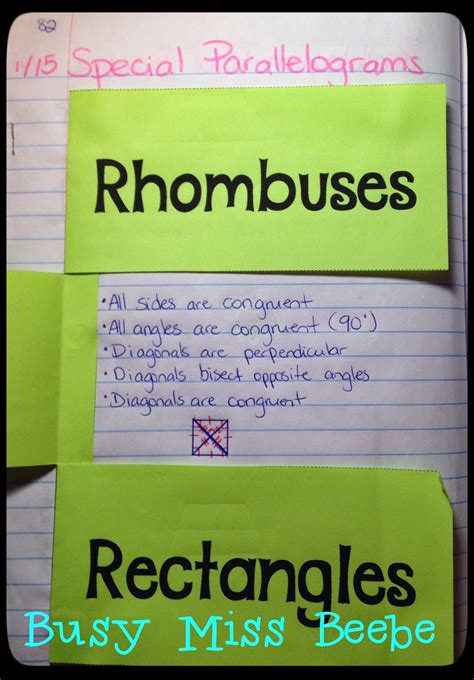 82
11/15 Special Parallelograms
Rhombuses
•All sides are congruent
•All angles are congruent (90°)
•Diagonals are perpendicular
•Diagonals bisect opposite angles
•Diagonals are congruent
Rectangles
Busy Miss Beebe